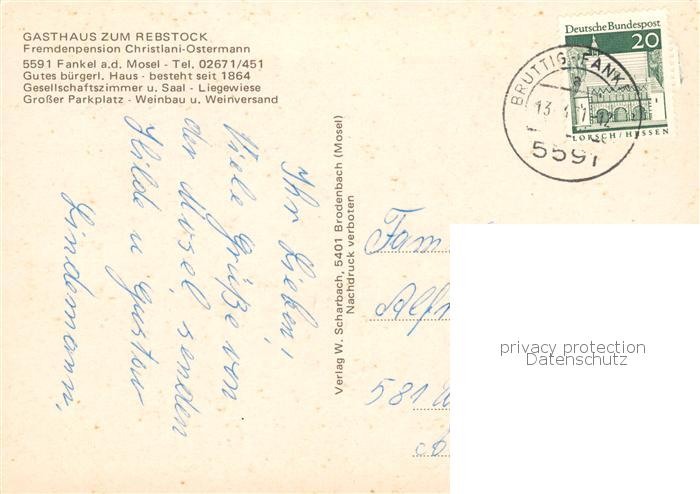 GASTHAUS ZUM REBSTOCK
Fremdenpension Christlani-Ostermann
5591 Fankel a.d. Mosel - Tel. 02671/451
Gutes bürgerl. Haus - besteht seit 1864
Gesellschaftszimmer u. Saal - Liegewiese
Großer Parkplatz - Weinbau u. Weinversand
Ihr Lieben,
Viele Grüße von
der Mosel senden
Hilde u Gustav
Lindemann.
Verlag W. Scharbach, 5401 Brodenbach (Mosel)
Nachdruck verboten
Deutsche Bundespost
20
LORSCH/HESSEN
BRUTTIG-FANK
13.
5591
Fam
Alfr
581
privacy protection
Datenschutz